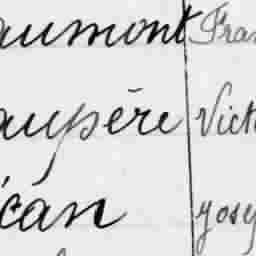 aumont Fran
aupère Vict
écan Josep